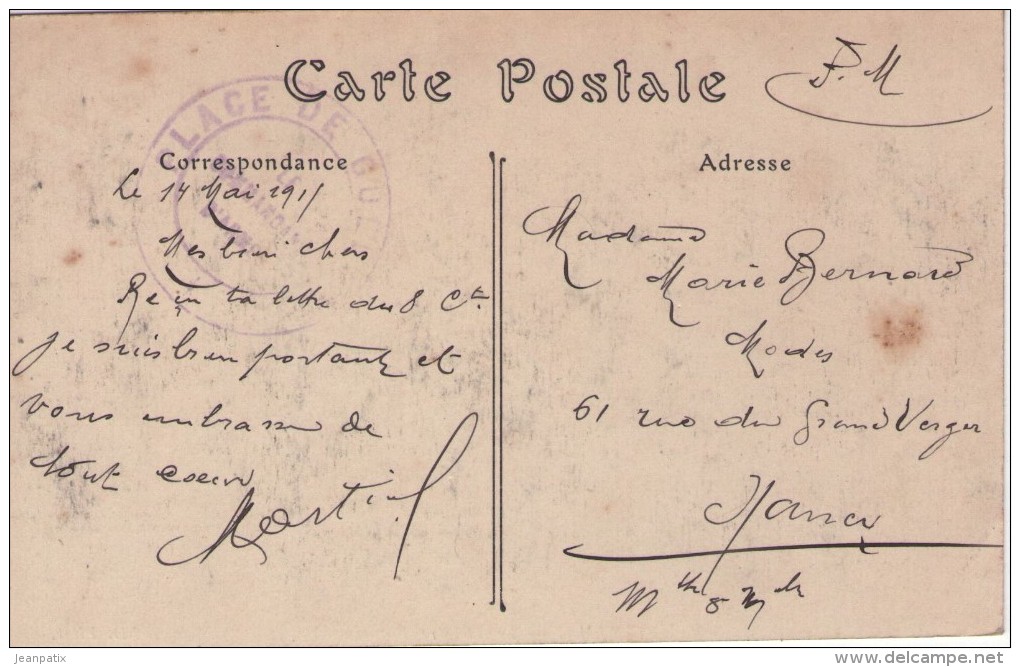 Carte Postale
F. M
PLACE DE GUE
Correspondance
Adresse
Le 14 Mai 1915
Mes bien chers
Reçu ta lettre du 8 Ct
je suis bien portant et
vous embrasse de
tout coeur
Martial
Madame
Marie Bernard
Modes
61 rue du Grand Verger
Nancy
Mthe & Mlle
jeanpatix
delcampe.net